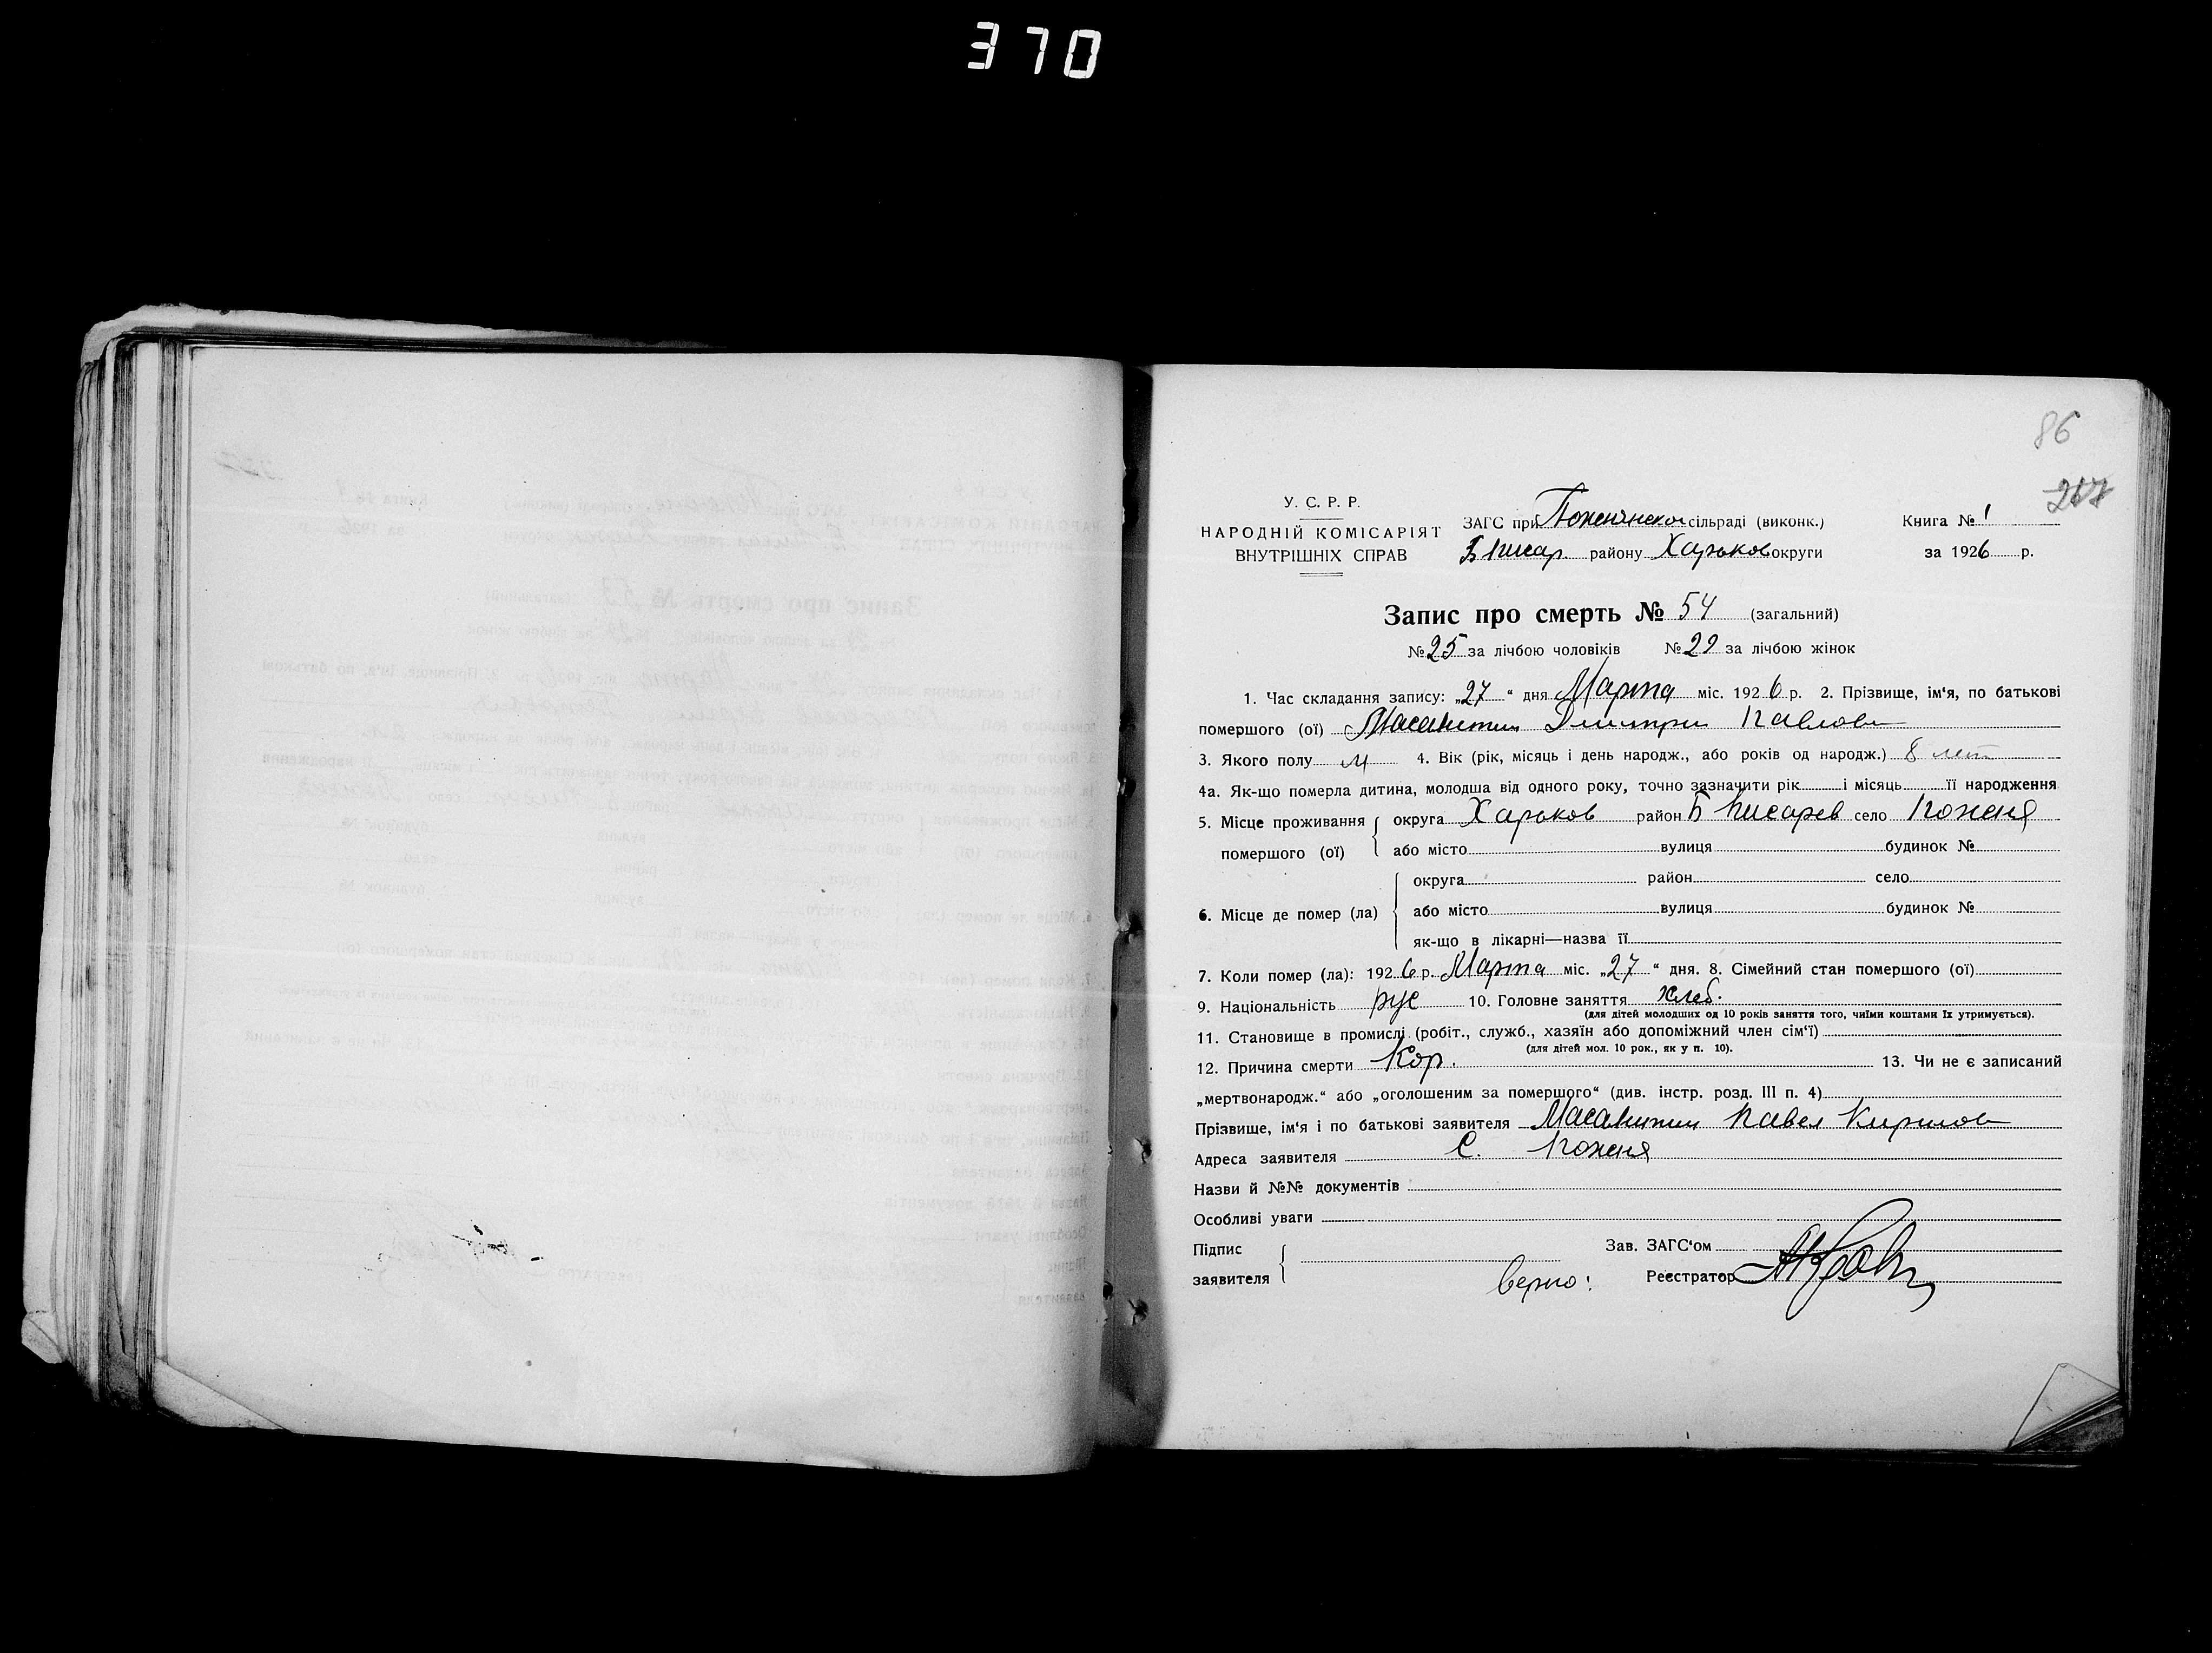 370
86
217
У. С. Р. Р.
НАРОДНІЙ КОМІСАРІЯТ
ВНУТРІШНІХ СПРАВ
ЗАГС при Поженянской сільраді (виконк.)
Б Писар. району Харьков округи
Книга № 1
за 1926 р.
Запис про смерть № 54 (загальний)
№ 25 за лічбою чоловіків № 29 за лічбою жінок
1. Час складання запису: „27“ дня Марта міс. 1926 р. 2. Прізвище, ім'я, по батькові
помершого (ої) Масалитин Дмитрий Павлов
3. Якого полу М 4. Вік (рік, місяць і день народж., або років од народж.) 8 лет
4а. Як-що померла дитина, молодша від одного року, точно зазначити рік і місяць її народження
5. Місце проживання помершого (ої) округа Харьков район Б Писарев село Поженя
або місто вулиця будинок №
6. Місце де помер (ла) округа район село
або місто вулиця будинок №
як-що в лікарні—назва її
7. Коли помер (ла): 1926 р. Марта міс. „27“ дня. 8. Сімейний стан помершого (ої)
9. Національність рус 10. Головне заняття хлеб.
(для дітей молодших од 10 років заняття того, чиїми коштами їх утримується).
11. Становище в промислі (робіт., служб., хазяїн або допоміжний член сім'ї)
(для дітей мол. 10 рок., як у п. 10).
12. Причина смерти Кор. 13. Чи не є записаний
„мертвонародж.“ або „оголошеним за помершого“ (див. інстр. розд. III п. 4)
Прізвище, ім'я і по батькові заявителя Масалитин Павел Кирилов
Адреса заявителя С. Поженя
Назви й №№ документів
Особливі уваги
Підпис заявителя
Зав. ЗАГС'ом
верно: Реєстратор